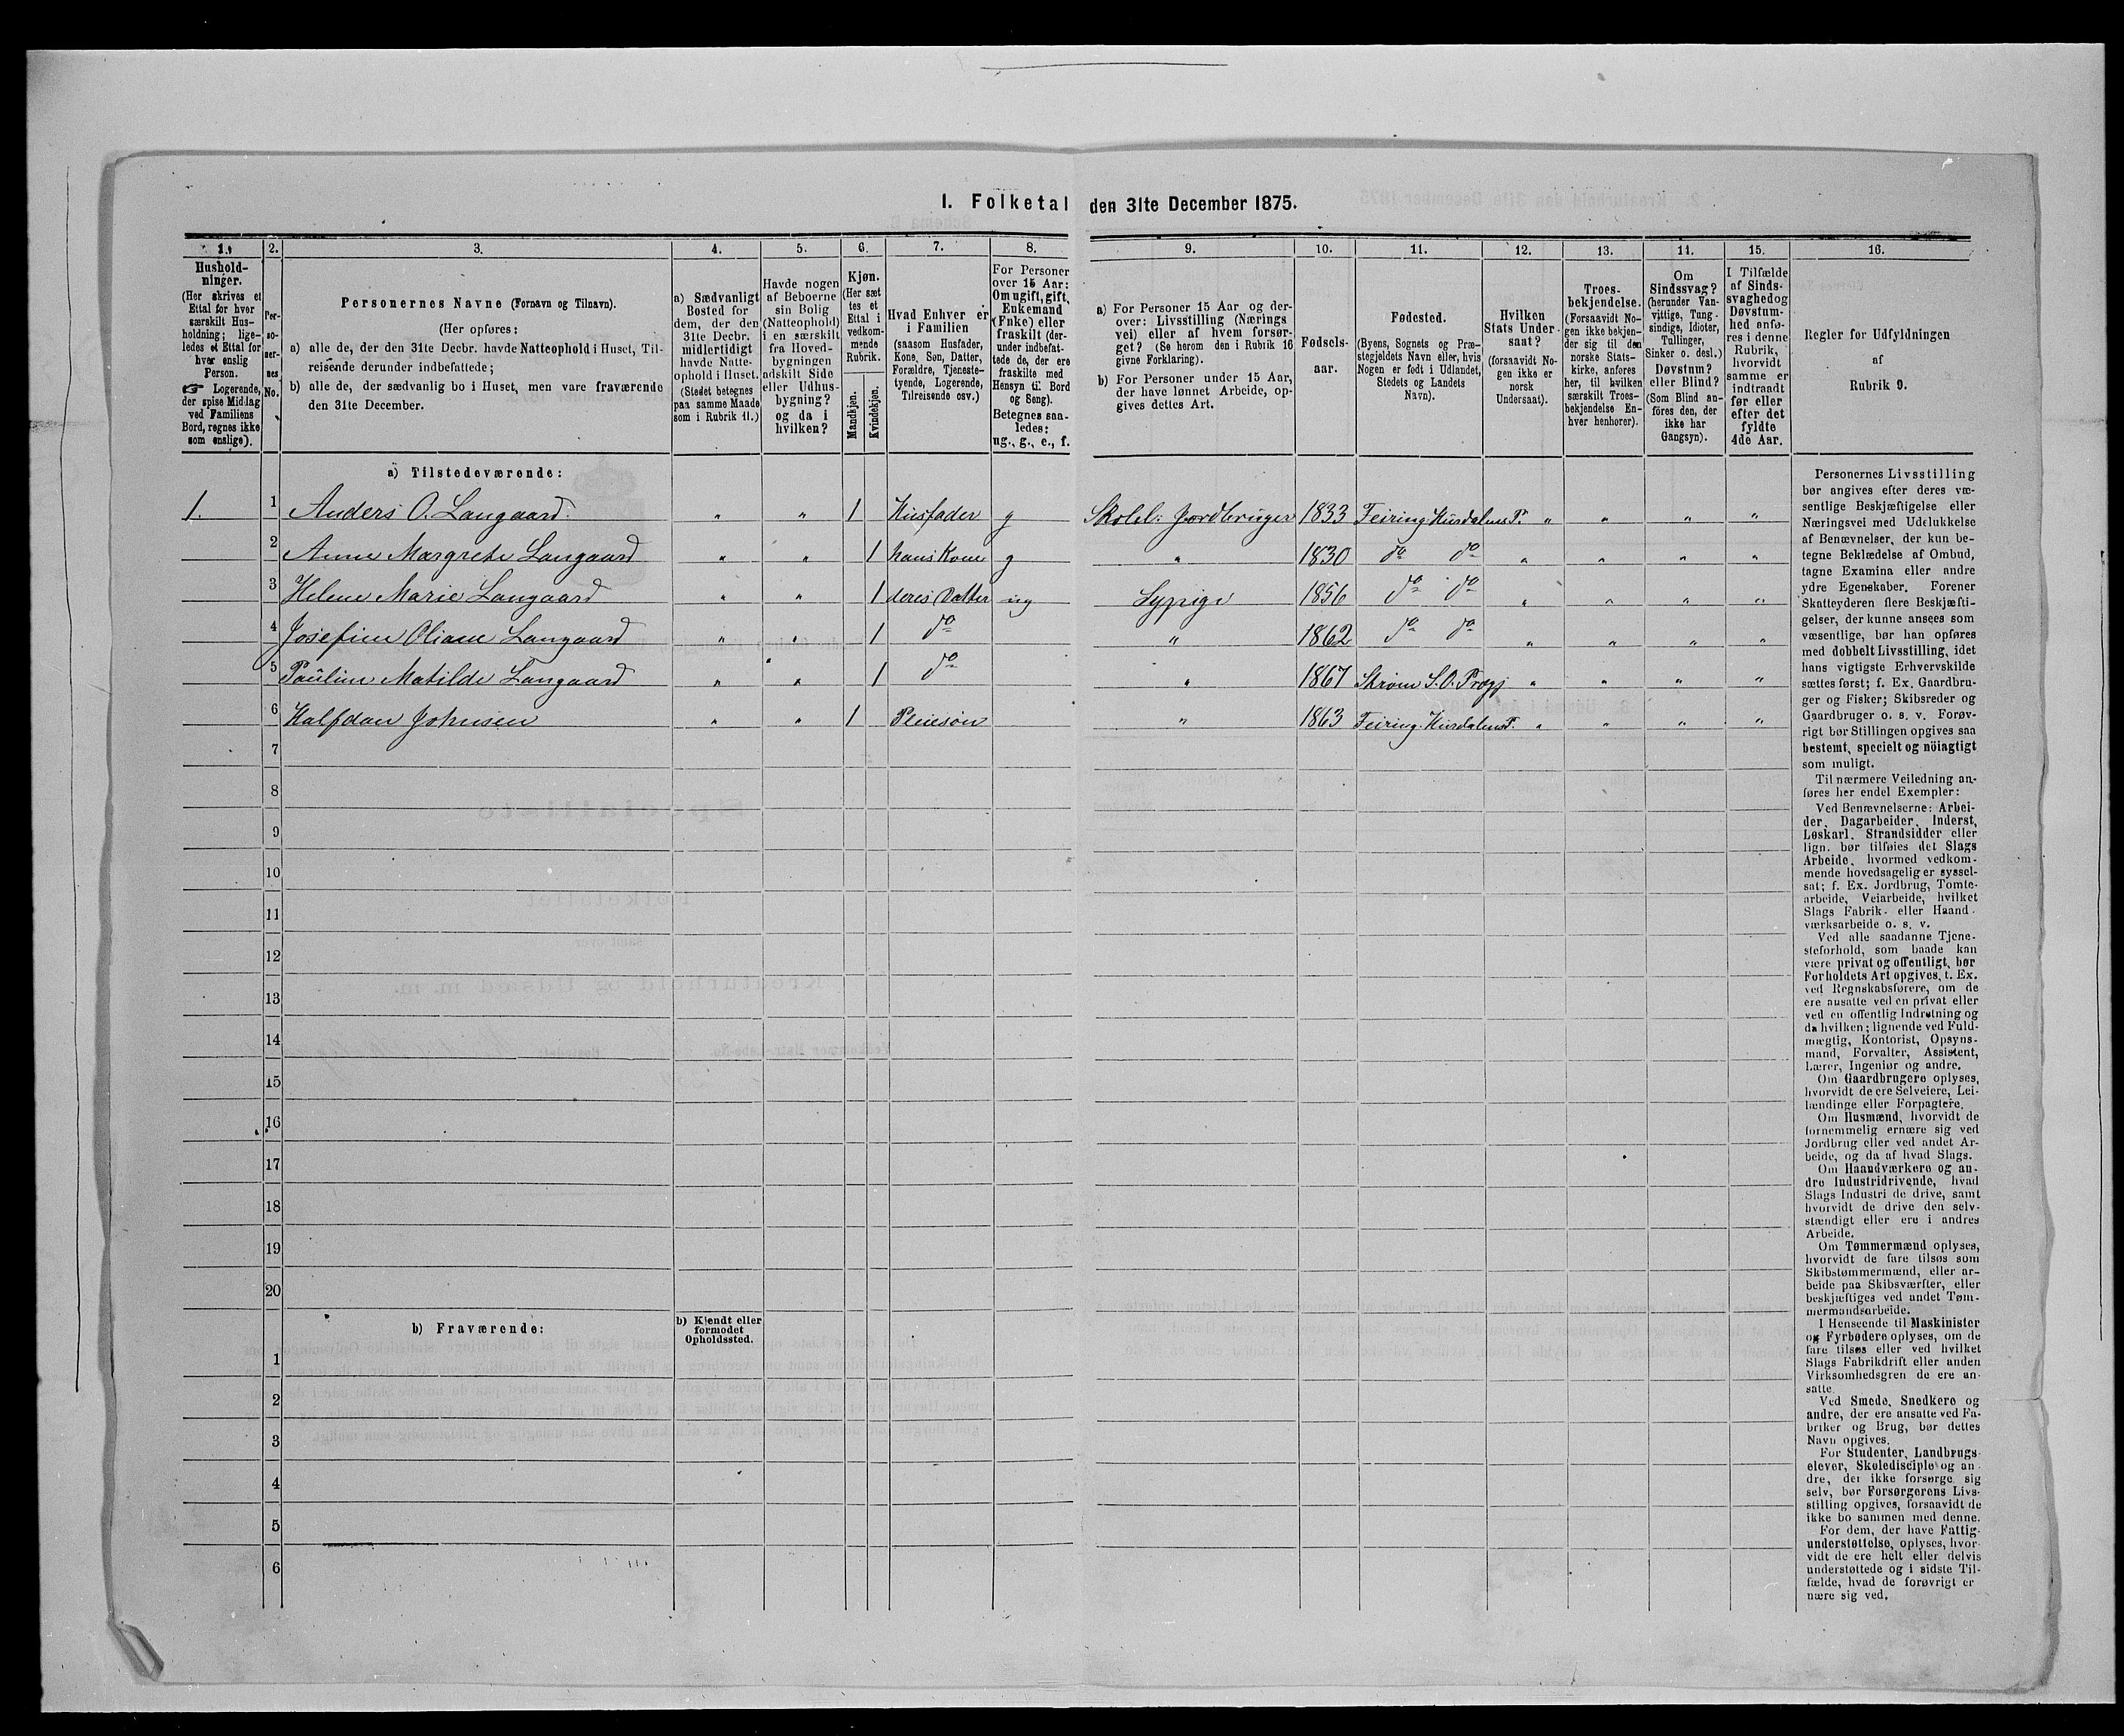 I. Folketal den 31te December 1875.
1. 2. 3. 4. 5. 6. 7. 8. 9. 10. 11. 12. 13. 14. 15. 16.
Hushold-
ninger.
(Her skrives et
Ettal for hver
særskilt Hus-
holdning; lige-
ledes et Ettal for
hver enslig
Person.
☞ Logerende,
der spise Middag
ved Familiens
Bord, regnes ikke
som enslige).
Per-
so-
ner-
nes
No.
Personernes Navne (Fornavn og Tilnavn).
(Her opføres:
a) alle de, der den 31te Decbr. havde Natteophold i Huset, Til-
reisende derunder indbefattede;
b) alle de, der sædvanlig bo i Huset, men vare fraværende
den 31te December.
a) Sædvanligt
Bosted for
dem, der den
31te Decbr.
midlertidigt
havde Natte-
ophold i Huset.
(Stedet betegnes
paa samme Maade
som i Rubrik 11.)
Havde nogen
af Beboerne
sin Bolig
(Natteophold)
i en særskilt
fra Hoved-
bygningen
adskilt Side
eller Udhus-
bygning?
og da i
hvilken?
Kjøn.
(Her sæt
tes et
Ettal i
vedkom-
mende
Rubrik.
Mandkjøn.
Kvindekjøn.
Hvad Enhver er
i Familien
(saasom Husfader,
Kone, Søn, Datter,
Forældre, Tjeneste-
tyende, Logerende,
Tilreisende osv.)
For Personer
over 15 Aar:
Om ugift, gift,
Enkemand
(Enke) eller
fraskilt (der-
under indbefat-
tede de, der ere
fraskilte med
Hensyn til Bord
og Seng).
Betegnes saa-
ledes:
ug., g., e., f.
a) For Personer 15 Aar og der-
over: Livsstilling (Nærings
vei) eller af hvem forsør-
get? (Se herom den i Rubrik 16
givne Forklaring).
b) For Personer under 15 Aar,
der have lønnet Arbeide, op-
gives dettes Art.
Fødsels-
aar.
Fødested.
(Byens, Sognets og Præ-
stegjeldets Navn eller, hvis
Nogen er født i Udlandet,
Stedets og Landets
Navn).
Hvilken
Stats Under-
saat?
(forsaavidt No-
gen ikke er
norsk
Undersaat).
Troes-
bekjendelse.
(Forsaavidt No-
gen ikke bekjen-
der sig til den
norske Stats-
kirke, anføres
her, til hvilken
særskilt Troes-
bekjendelse En-
hver henhører).
Om
Sindssvag?
(herunder Van-
vittige, Tung-
sindige, Idioter,
Tullinger,
Sinker o. desl.)
Døvstum?
eller Blind?
(Som Blind an-
føres den, der
ikke har
Gangsyn).
I Tilfælde
af Sinds-
svaghed og
Døvstum-
hed anfø-
res i denne
Rubrik,
hvorvidt
samme er
indtraadt
før eller
efter det
fyldte
4de Aar.
Regler for Udfyldningen
af
Rubrik 9.
a) Tilstedeværende:
1. 1 Anders O. Langaard. " " 1 Husfader g Skolel. Jordbruger 1833 Feiring Hurdalens P. " " " "
2 Anne Margrete Langaard " " 1 hans Kone g " 1830 do do " " " "
3 Helene Marie Langaard " " 1 deres Datter ug Sypige 1856 do do " " " "
4 Josefine Oliane Langaard " " 1 do " 1862 do do " " " "
5 Pauline Matilde Langaard " " 1 do " 1867 Skrøm S. O. Prgj " " " "
6 Halfdan Johnsen " " 1 Pleiesøn " 1863 Feiring Hurdalens P. " " " "
7
8
9
10
11
12
13
14
15
16
17
18
19
20
b) Fraværende:
b) Kjendt eller
formodet
Opholdssted.
1
2
3
4
5
6
Personernes Livsstilling
bør angives efter deres væ-
sentlige Beskjæftigelse eller
Næringsvei med Udelukkelse
af Benævnelser, der kun be-
tegne Beklædelse af Ombud,
tagne Examina eller andre
ydre Egenskaber. Forener
Skatteyderen flere Beskjæfti-
gelser, der kunne ansees som
væsentlige, bør han opføres
med dobbelt Livsstilling, idet
hans vigtigste Erhvervskilde
sættes først; f. Ex. Gaardbru-
ger og Fisker; Skibsreder og
Gaardbruger o. s. v. Forøv-
rigt bør Stillingen opgives saa
bestemt, specielt og nöiagtigt
som muligt.
Til nærmere Veiledning an-
føres her endel Exempler:
Ved Benævnelserne: Arbei-
der, Dagarbeider, Inderst,
Løskarl, Strandsidder eller
lign. bør tilføies det Slags
Arbeide, hvormed vedkom-
mende hovedsagelig er syssel-
sat; f. Ex. Jordbrug, Tomte-
arbeide, Veiarbeide, hvilket
Slags Fabrik- eller Haand-
værksarbeide o. s. v.
Ved alle saadanne Tjene-
steforhold, som baade kan
være privat og offentligt, bør
Forholdets Art opgives, t. Ex.
ved Regnskabsførere, om de
ere ansatte ved en privat eller
ved en offentlig Indretning og
da hvilken; lignende ved Fuld-
mægtig, Kontorist, Opsyns-
mand, Forvalter, Assistent,
Lærer, Ingeniør og andre.
Om Gaardbrugere oplyses,
hvorvidt de ere Selveiere, Lei-
lændinge eller Forpagtere.
Om Husmænd, hvorvidt de
fornemmelig ernære sig ved
Jordbrug eller ved andet Ar-
beide, og da af hvad Slags.
Om Haandværkere og an-
dre Industridrivende, hvad
Slags Industri de drive, samt
hvorvidt de drive den selv-
stændigt eller ere i andres
Arbeide.
Om Tømmermænd oplyses,
hvorvidt de fare tilsøs som
Skibstømmermænd, eller ar-
beide paa Skibsværfter, eller
beskjæftiges ved andet Tøm-
mermandsarbeide.
I Henseende til Maskinister
og Fyrbødere oplyses, om de
fare tilsøs eller ved hvilket
Slags Fabrikdrift eller anden
Virksomhedsgren de ere an-
satte.
Ved Smede, Snedkere og
andre, der ere ansatte ved Fa-
briker og Brug, bør dettes
Navn opgives.
For Studenter, Landbrugs-
elever, Skoledisciple og an-
dre, der ikke forsørge sig
selv, bør Forsørgerens Livs-
stilling opgives, forsaavidt de
ikke bo sammen med denne.
For dem, der have Fattig-
understøttelse, oplyses, hvor-
vidt de ere helt eller delvis
understøttede og i sidste Til-
fælde, hvad de forøvrigt er
nære sig ved.